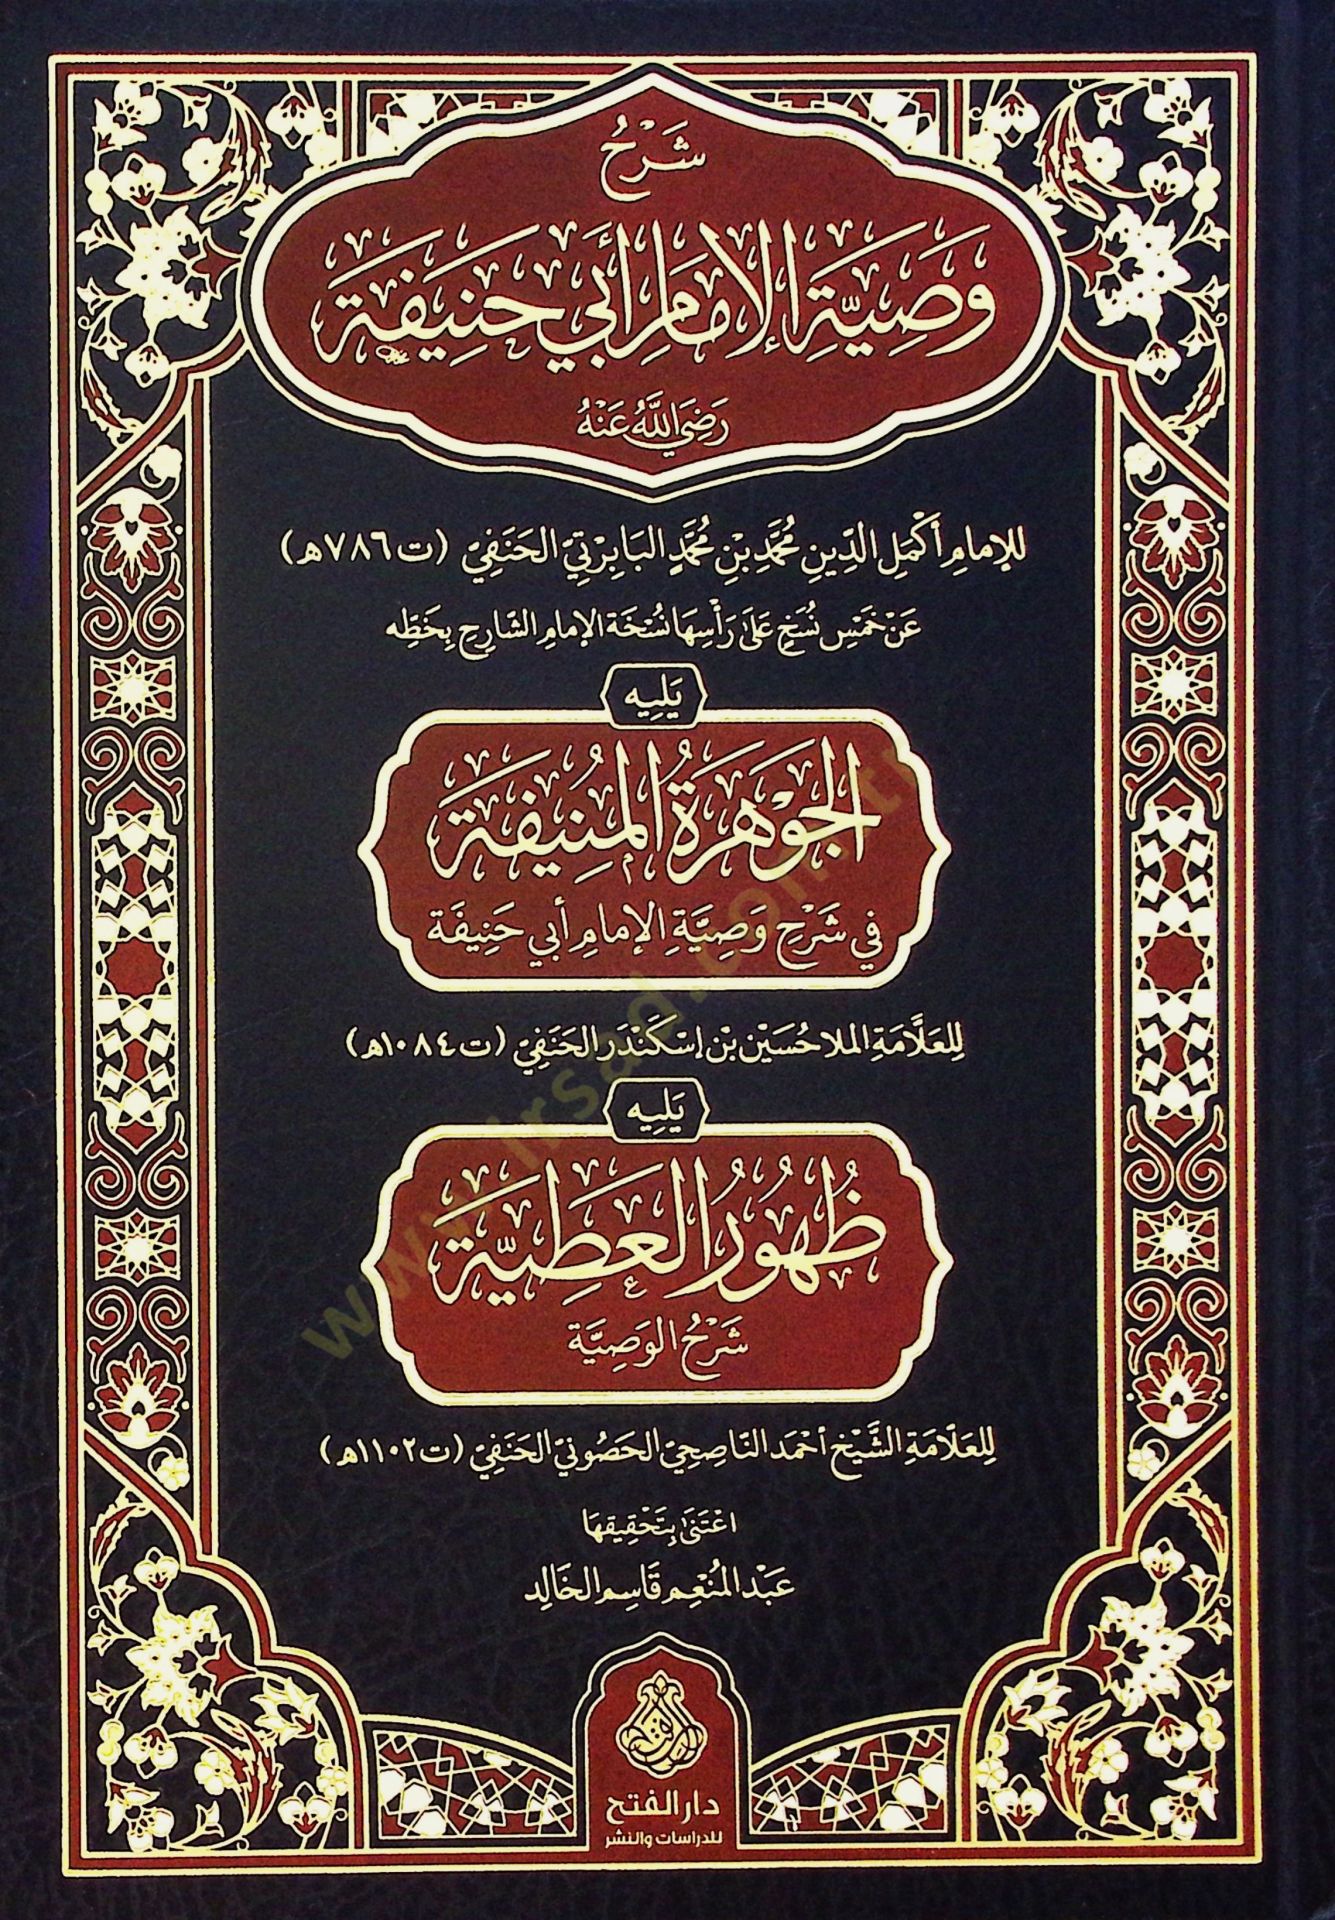 شَرْحُ
وَصِيَّةِ الإِمَامِ أَبِي حَنِيفَة
رَضِيَ اللَّهُ عَنْهُ
لِلإِمَامِ أَكْمَلِ الدِّينِ مُحَمَّدِ بْنِ مُحَمَّدٍ البَابِرْتِيِّ الحَنَفِيِّ (ت ٧٨٦هـ)
عَنْ خَمْسِ نُسَخٍ عَلَى رَأْسِهَا نُسْخَة الإِمَامِ الشَّارِحِ بِخَطِّه
يَلِيه
الجَوْهَرَةُ المُنِيفَة
فِي شَرْحِ وَصِيَّةِ الإِمَامِ أَبِي حَنِيفَة
لِلعَلَّامَةِ المُلا حُسَيْن بْن إسْكَنْدَر الحَنَفِيِّ (ت ١٠٨٤هـ)
يَلِيه
ظُهُورُ العَطِيَّة
شَرْحُ الوَصِيَّة
لِلعَلَّامَةِ الشَّيْخِ أَحْمَد النَّاصِحِيِّ الحَصُونِيِّ الحَنَفِيِّ (ت ١١٠٢هـ)
اعْتَنَى بِتَحْقِيقِهَا
عَبْدُ المُنْعِم قَاسِم الخَالِد
دار الفتح
للدراسات والنشر
www.irsad.com.tr